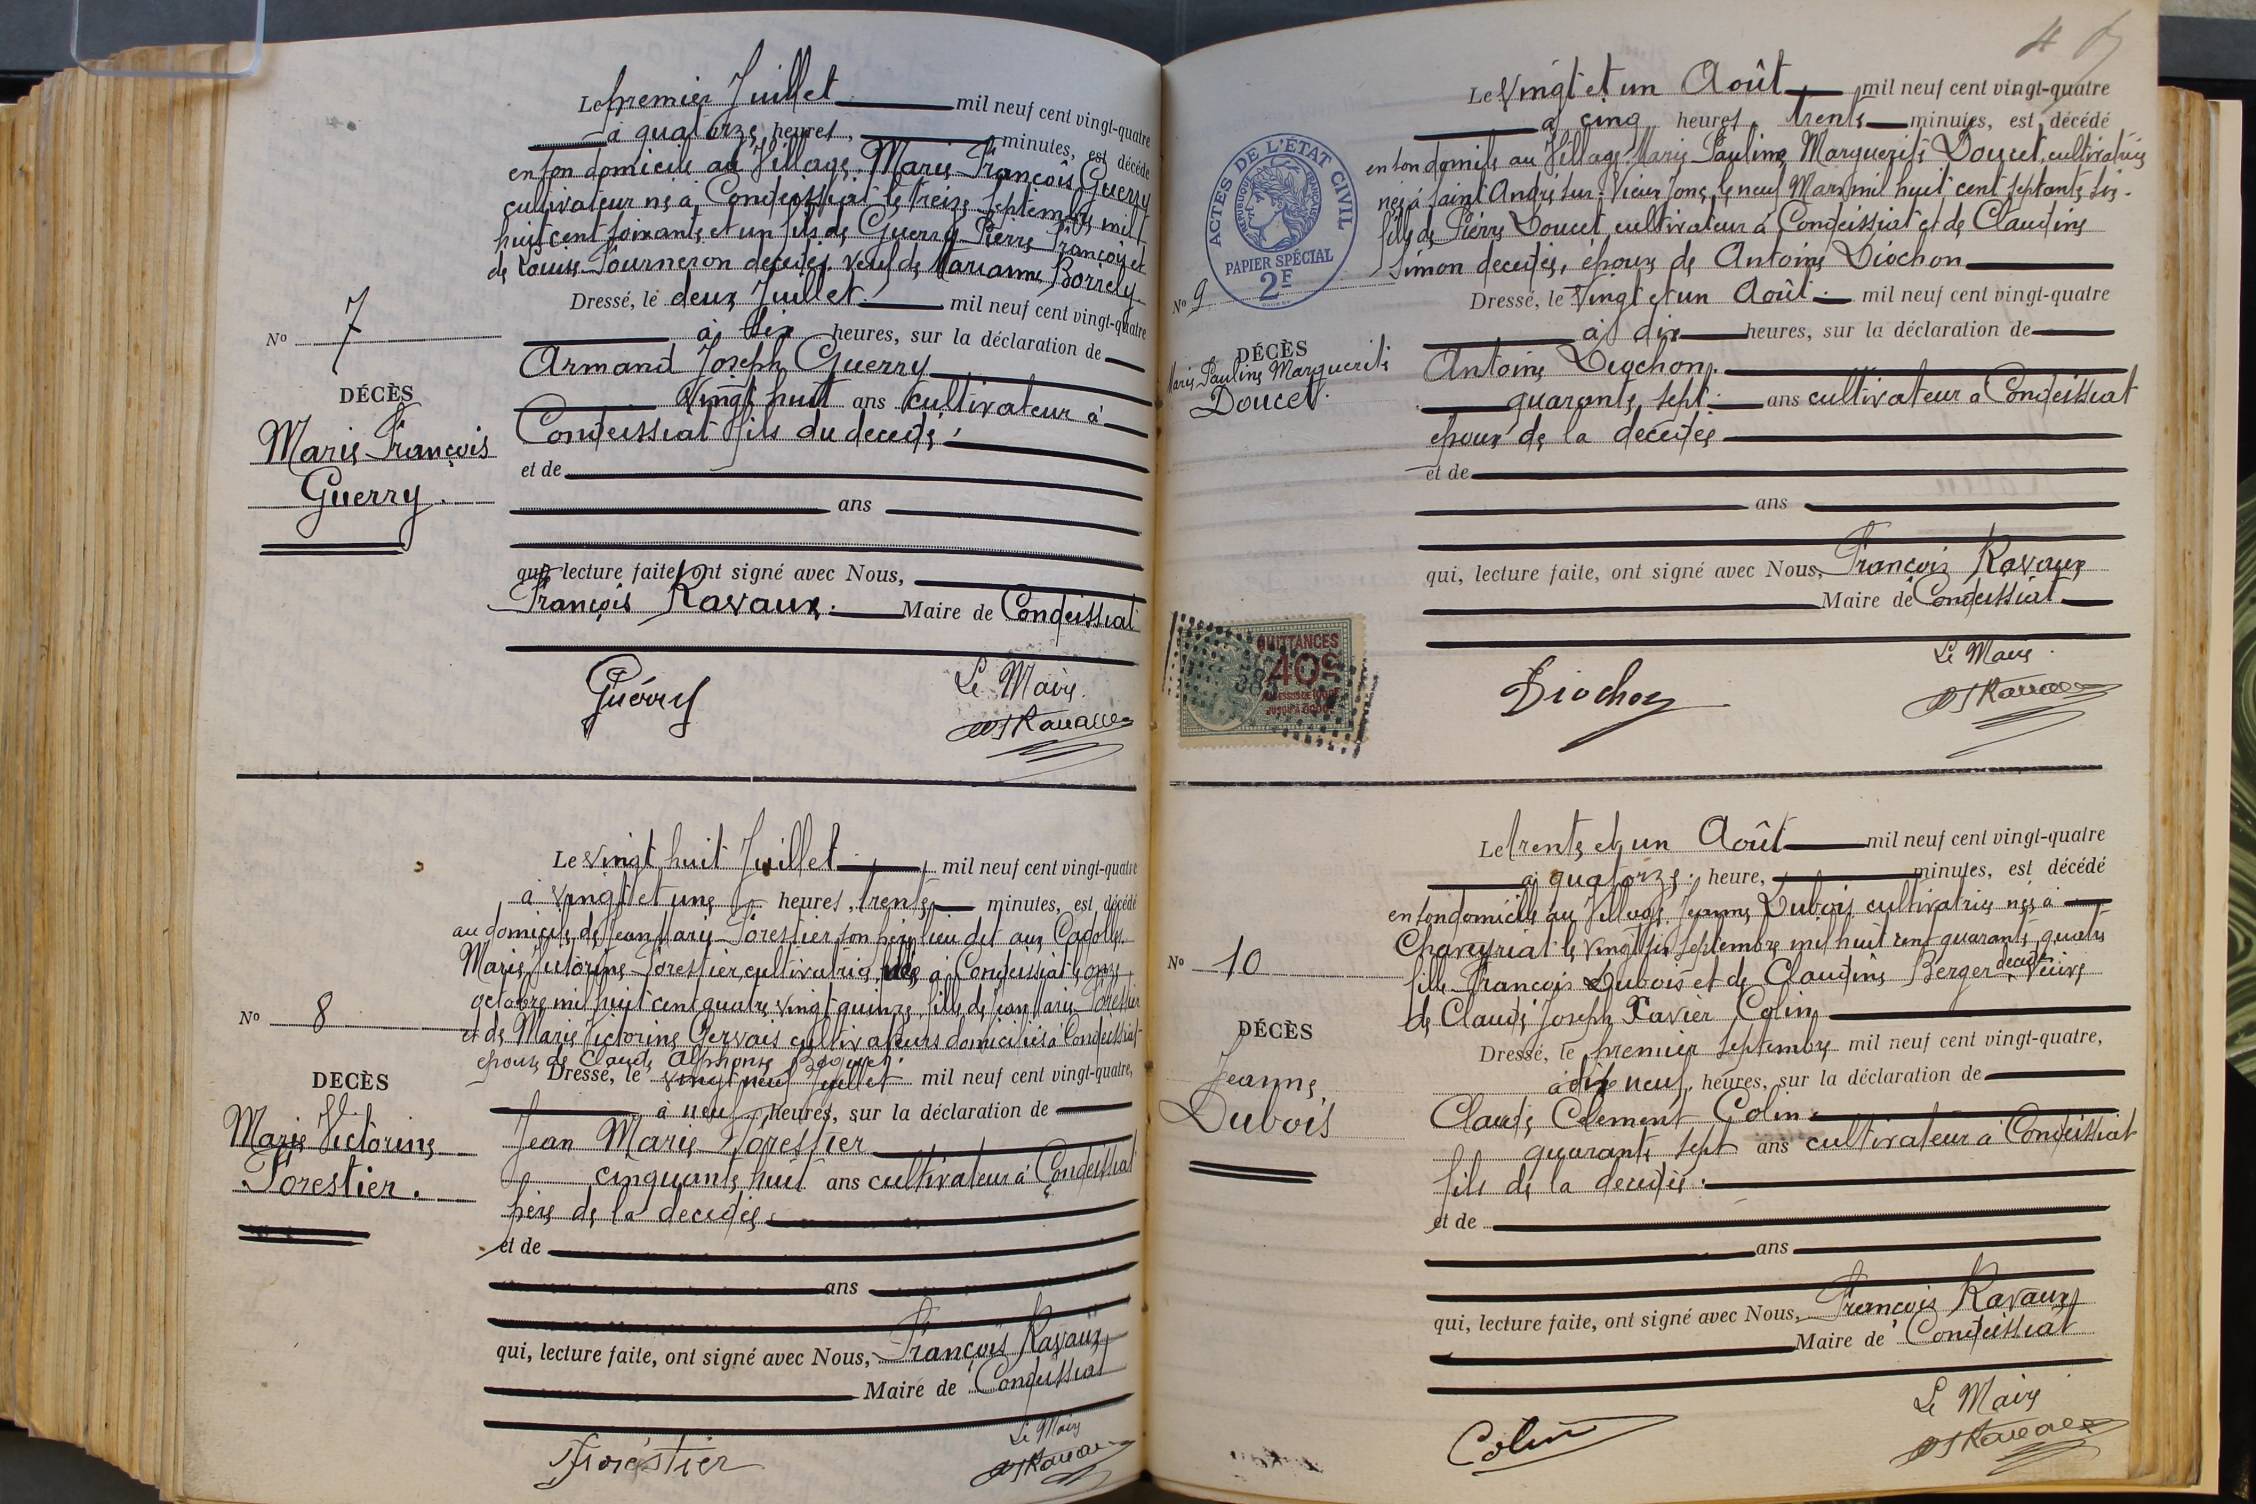 Le premier Juillet mil neuf cent vingt-quatre
à quatorze heures, minutes, est décédé
en son domicile au Village Marie François Guerry
cultivateur né à Condeissiat le treize Septembre mil
huit cent soixante et un fils de Guerry Pierre François et
de Louise Tourneron décédés veuf de Marianne Borrely
Dressé, le deux Juillet mil neuf cent vingt-quatre
à dix heures, sur la déclaration de
Armand Joseph Guerry
vingt huit ans cultivateur à
Condeissiat fils du décédé
et de
ans
qui, lecture faite, ont signé avec Nous,
François Ravaux. Maire de Condeissiat
Guérry
Le Maire.
Ravaux
No 7
DÉCÈS
Marie François
Guerry.
Le vingt huit Juillet mil neuf cent vingt-quatre
à vingt et une heures, trente minutes, est décédé
au domicile de Jean Marie Forestier son père lieu dit aux Cadolles
Marie Victorine Forestier, cultivatrice née à Condeissiat le onze
octobre mil huit cent quatre vingt quinze, fille de Jean Marie Forestier
et de Marie Victorine Gervais cultivateurs domiciliés à Condeissiat
épouse de Claude Alphonse
Dressé, le vingt neuf Juillet mil neuf cent vingt-quatre,
à neuf heures, sur la déclaration de
Jean Marie Forestier
cinquante huit ans cultivateur à Condeissiat
père de la décédée
et de
ans
qui, lecture faite, ont signé avec Nous, François Ravaux
Maire de Condeissiat
Forestier
Le Maire
Ravaux
No 8
DECÈS
Marie Victorine
Forestier.
Le vingt et un Août mil neuf cent vingt-quatre
à cinq heures, trente minutes, est décédé
en son domicile au Village Marie Pauline Marguerite Doucet, cultivatrice
née à Saint André sur Vieux Jonc, le neuf Mars mil huit cent septante six
fille de Pierre Doucet cultivateur à Condeissiat et de Claudine
Simon décédée, épouse de Antoine Diochon
Dressé, le vingt et un Août mil neuf cent vingt-quatre
à dix heures, sur la déclaration de
Antoine Diochon.
quarante sept ans cultivateur à Condeissiat
époux de la décédée
et de
ans
qui, lecture faite, ont signé avec Nous, François Ravaux
Maire de Condeissiat
Diochon
Le Maire.
Ravaux
ACTES DE L'ÉTAT CIVIL
RÉPUBLIQUE FRANÇAISE
PAPIER SPÉCIAL
2F
No 9
DÉCÈS
Marie Pauline Marguerite
Doucet.
QUITTANCES
40c
Le trente et un Août mil neuf cent vingt-quatre
à quatorze heure, minutes, est décédé
en son domicile au Village Jeanne Dubois cultivatrice née à
Chaveyriat le vingt six Septembre mil huit cent quarante quatre
fille François Dubois et de Claudine Berger décédés Veuve
de Claude Joseph Xavier Colin
Dressé, le premier Septembre mil neuf cent vingt-quatre,
à dix neuf heures, sur la déclaration de
Claude Clément Colin
quarante sept ans cultivateur à Condeissiat
fils de la décédée.
et de
ans
qui, lecture faite, ont signé avec Nous, François Ravaux
Maire de Condeissiat
Colin
Le Maire
Ravaux
No 10
DÉCÈS
Jeanne
Dubois